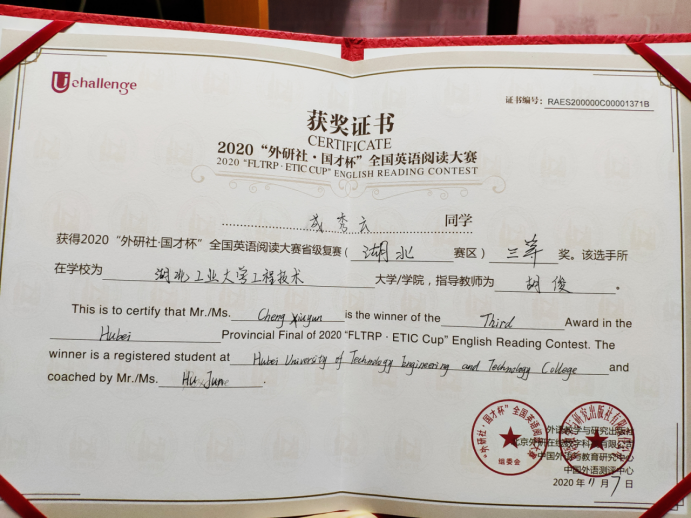 Uchallenge
证书编号：RAES200000C00001371B
获奖证书
CERTIFICATE
2020“外研社·国才杯”全国英语阅读大赛
2020 "FLTRP · ETIC CUP" ENGLISH READING CONTEST
成秀云 同学
获得2020“外研社·国才杯”全国英语阅读大赛省级复赛（湖北 赛区）三等 奖。该选手所
在学校为 湖北工业大学工程技术 大学/学院，指导教师为 胡俊 。
This is to certify that Mr./Ms. Cheng Xiuyun is the winner of the Third Award in the
Hubei Provincial Final of 2020 "FLTRP · ETIC Cup" English Reading Contest. The
winner is a registered student at Hubei University of Technology Engineering and Technology College and
coached by Mr./Ms. Hu June .
“外研社·国才杯”全国英语阅读大赛
组委会
外语教学与研究出版社
北京外研在线数字科技有限公司
中国外语与教育研究中心
中国外语测评中心
2020年11月7日